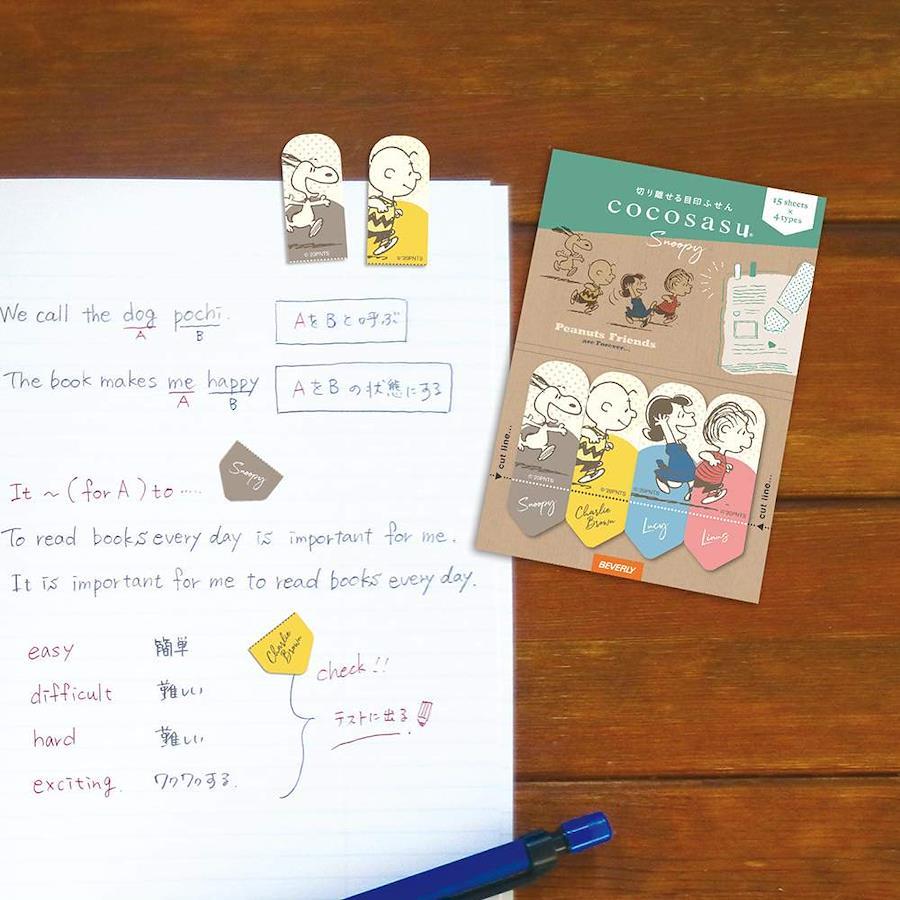 ©'20PNTS
©'20PNTS
We call the dog pochi.
A B
AをBと呼ぶ
The book makes me happy
A B
AをBの状態にする
Snoopy
It ~ (for A) to ……
To read books every day is important for me.
It is important for me to read books every day.
easy 簡単
difficult 難しい
hard 難しい
exciting. ワクワクする.
Charlie Brown
check!!
テストに出る
切り離せる目印ふせん
cocosasu®
Snoopy
15 sheets
×
4 types
Peanuts Friends
are Forever...
cut line...
©'20PNTS
©'20PNTS
©'20PNTS
Snoopy
Charlie
Brown
Lucy
Linus
cut line...
BEVERLY